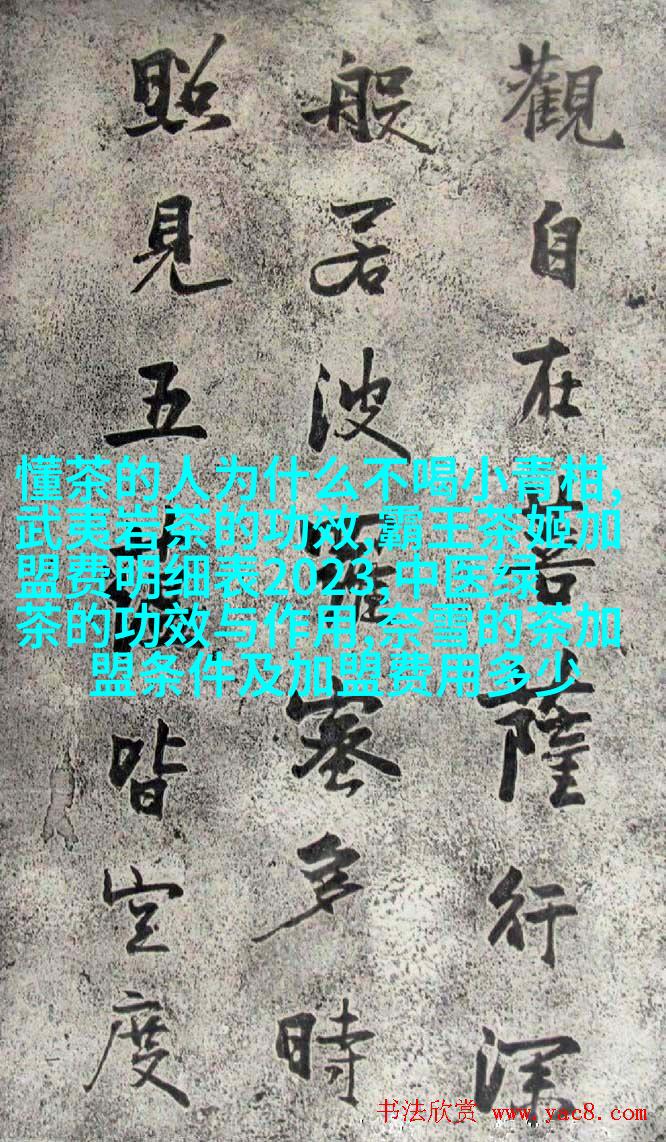 觀自在菩薩行深
般若波羅蜜多時
照見五蘊皆空度
懂茶的人为什么不喝小青柑,
武夷岩茶的功效,霸王茶姬加
盟费明细表2023,中医绿
茶的功效与作用,奈雪的茶加
盟条件及加盟费用多少
书法欣赏 www.yac8.com